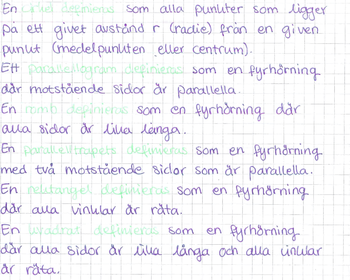 En cirkel definieras som alla punkter som ligger
på ett givet avstånd r (radie) från en given
punkt (medelpunkten eller centrum).
Ett parallellogram definieras som en fyrhörning
där motstående sidor är parallella.
En romb definieras som en fyrhörning där
alla sidor är lika långa.
En parallelltrapets definieras som en fyrhörning
med två motstående sidor som är parallella.
En rektangel definieras som en fyrhörning
där alla vinklar är räta.
En kvadrat definieras som en fyrhörning
där alla sidor är lika långa och alla vinklar
är räta.